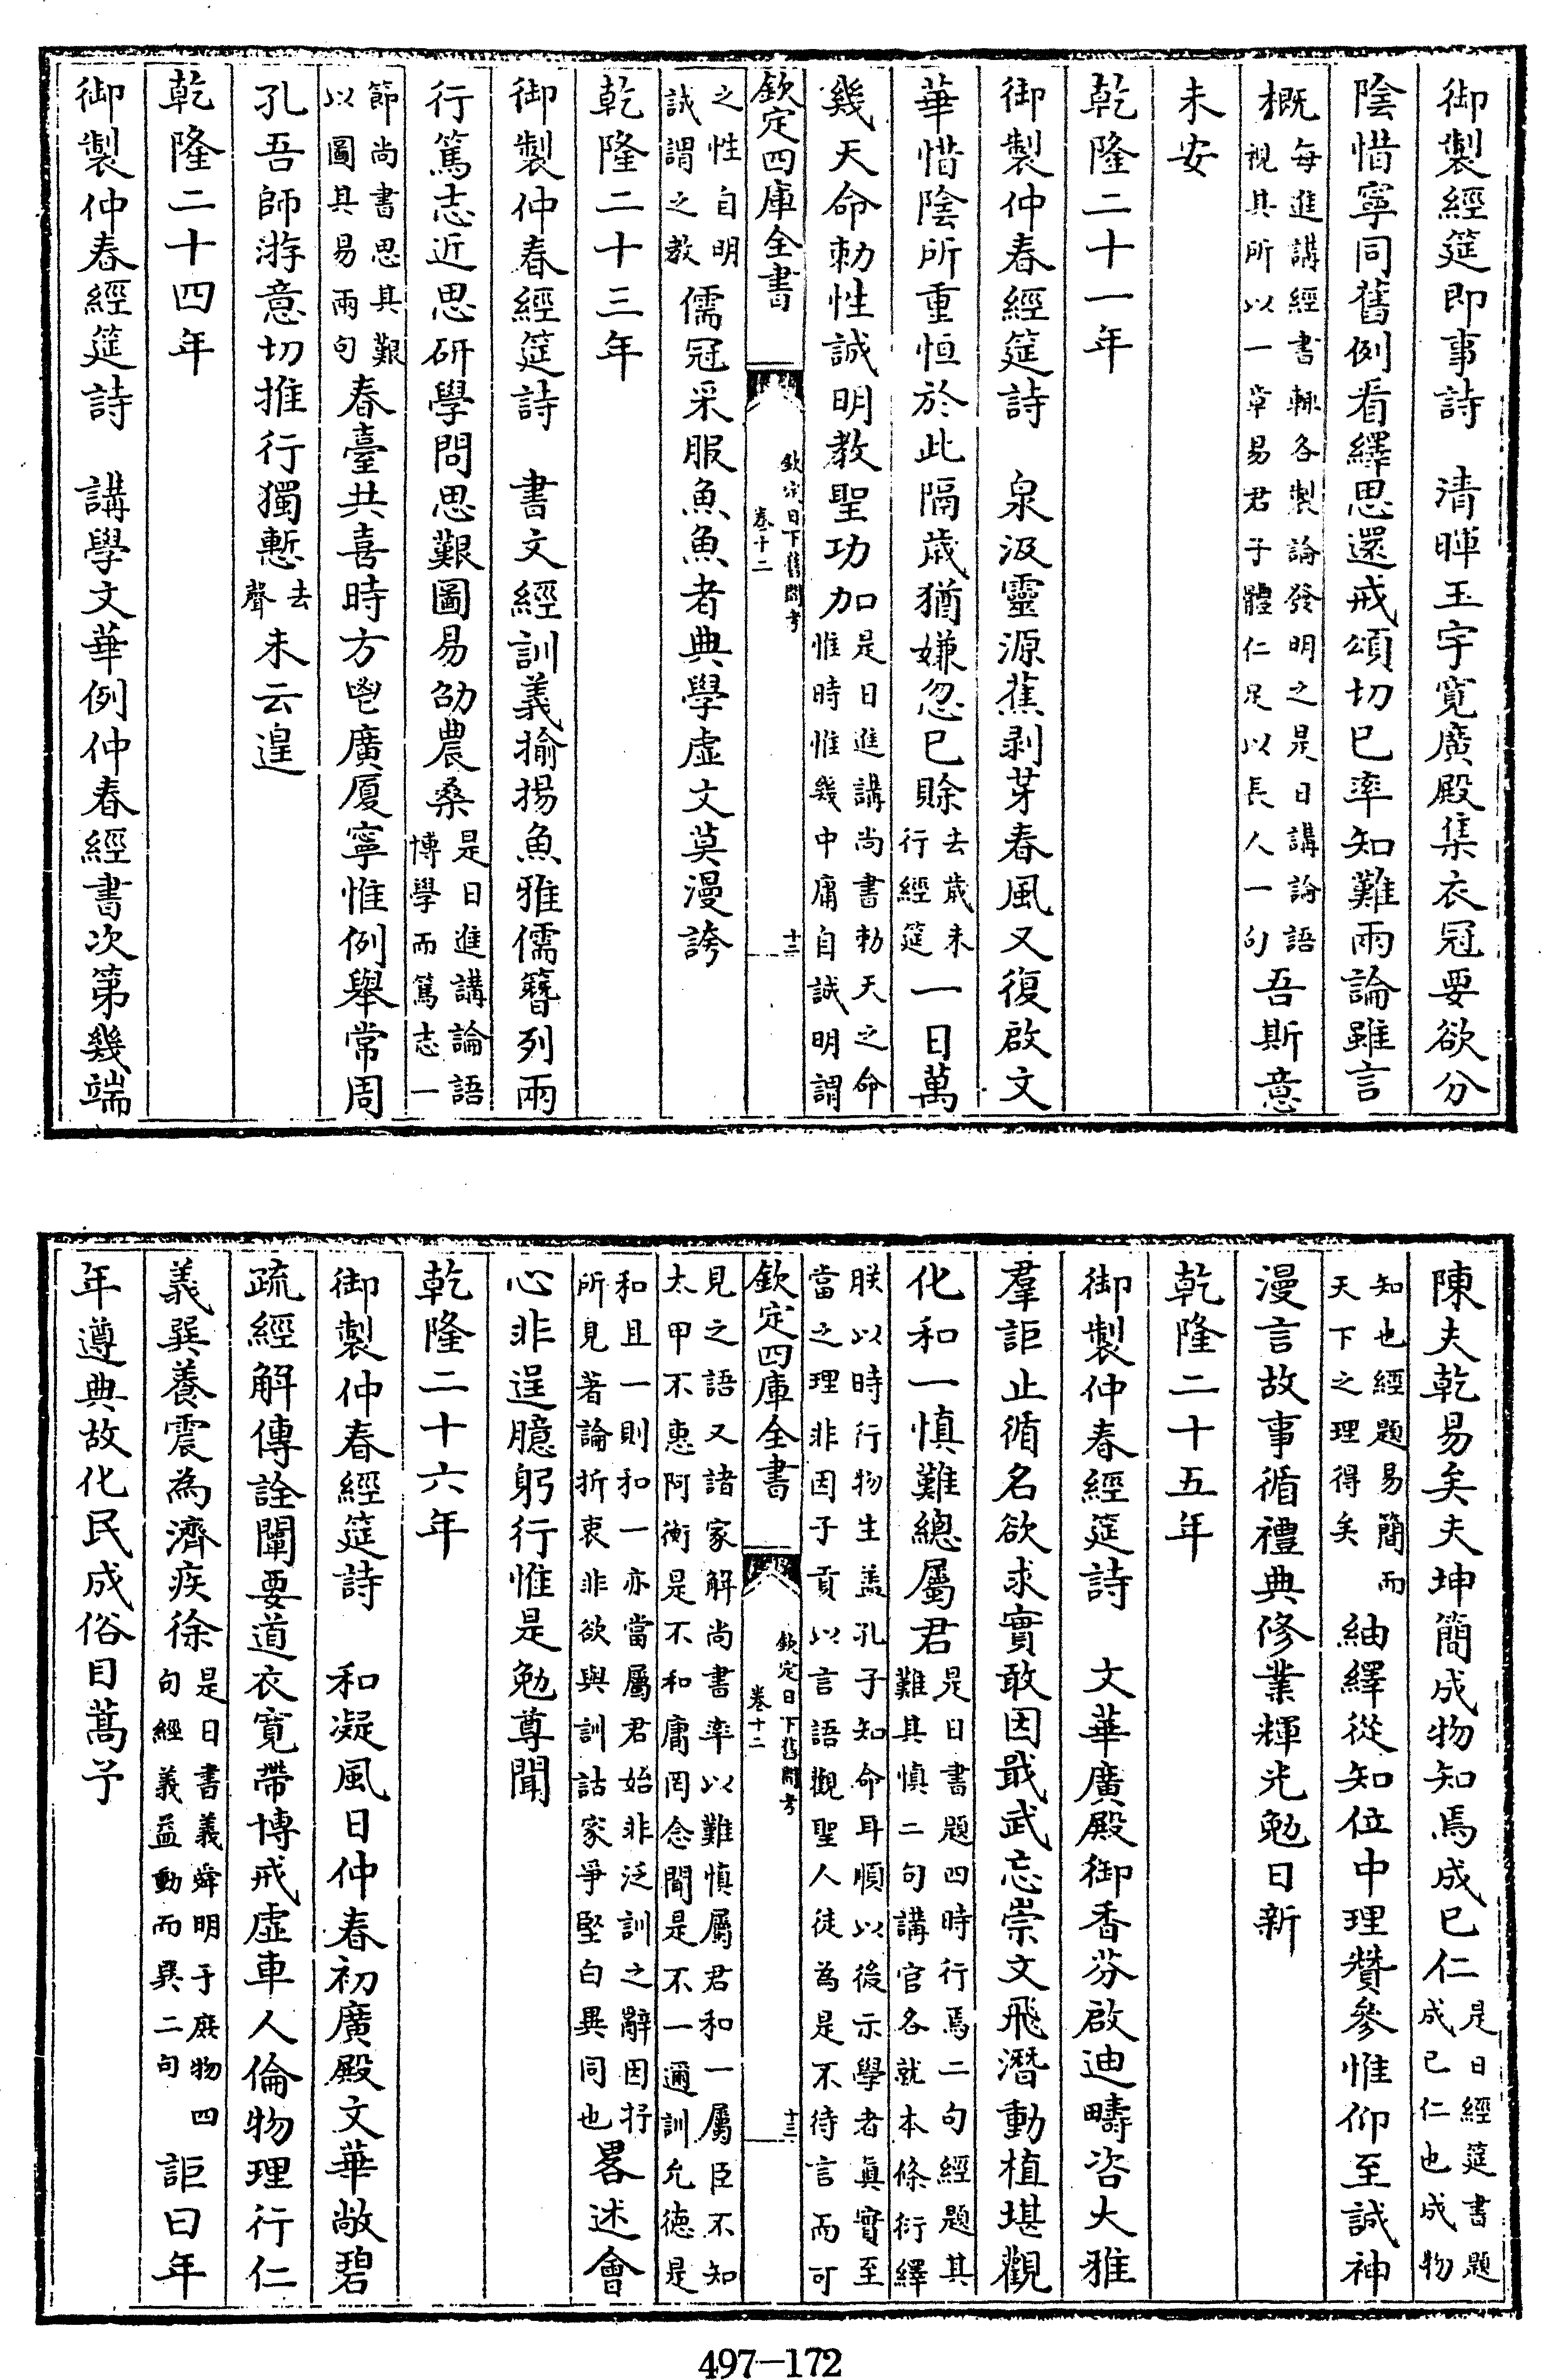 御製經筵即事詩　清暉玉宇寛廣殿集衣冠要欲分
陰惜寧同舊例看繹思還戒頌切已率知難兩論雖言
概每進講經書輒各製論發明之是日講論語視其所以一章易君子體仁足以長人一句吾斯意
未安
乾隆二十一年
御製仲春經筵詩　泉汲靈源蕉剥芽春風又復啟文
華惜陰所重恒於此隔歲猶嫌忽已賖去歲未行經筵一日萬
幾天命勅性誠明教聖功加是日進講尚書勅天之命惟時惟幾中庸自誠明謂
欽定四庫全書
欽定日下舊聞考
卷十二
十二
之性自明誠謂之教儒冠采服魚魚者典學虚文莫漫誇
乾隆二十三年
御製仲春經筵詩　書文經訓義揄揚魚雅儒簪列兩
行篤志近思研學問思艱圖易劭農桑是日進講論語博學而篤志一
節尚書思其艱以圖其易兩句春臺共喜時方鬯廣厦寧惟例舉常周
孔吾師游意切推行獨慙去聲未云遑
乾隆二十四年
御製仲春經筵詩　講學文華例仲春經書次第幾端
陳夫乾易矣夫坤簡成物知焉成已仁是日經筵書題成已仁也成物
知也經題易簡而天下之理得矣紬繹從知位中理贊參惟仰至誠神
漫言故事循禮典修業輝光勉日新
乾隆二十五年
御製仲春經筵詩　文華廣殿御香芬啟迪疇咨大雅
羣詎止循名欲求實敢因戢武忘崇文飛潛動植堪觀
化和一慎難總屬君是日書題四時行焉二句經題其難其慎二句講官各就本條衍繹
朕以時行物生蓋孔子知命耳順以後示學者真實至當之理非因子貢以言語觀聖人徒為是不待言而可
欽定四庫全書
欽定日下舊聞考
卷十二
十三
見之語又諸家解尚書率以難慎屬君和一屬臣不知太甲不惠阿衡是不和庸罔念聞是不一邇訓允徳是
和且一則和一亦當屬君始非泛訓之辭因抒所見著論折衷非欲與訓詁家爭堅白異同也畧述會
心非逞臆躬行惟是勉尊聞
乾隆二十六年
御製仲春經筵詩　和凝風日仲春初廣殿文華敞碧
疏經解傳詮闡要道衣寛帶博戒虚車人倫物理行仁
義巽養震為濟疾徐是日書義舜明于庶物四句經義益動而巽二句詎曰年
年遵典故化民成俗目蒿予
497—172